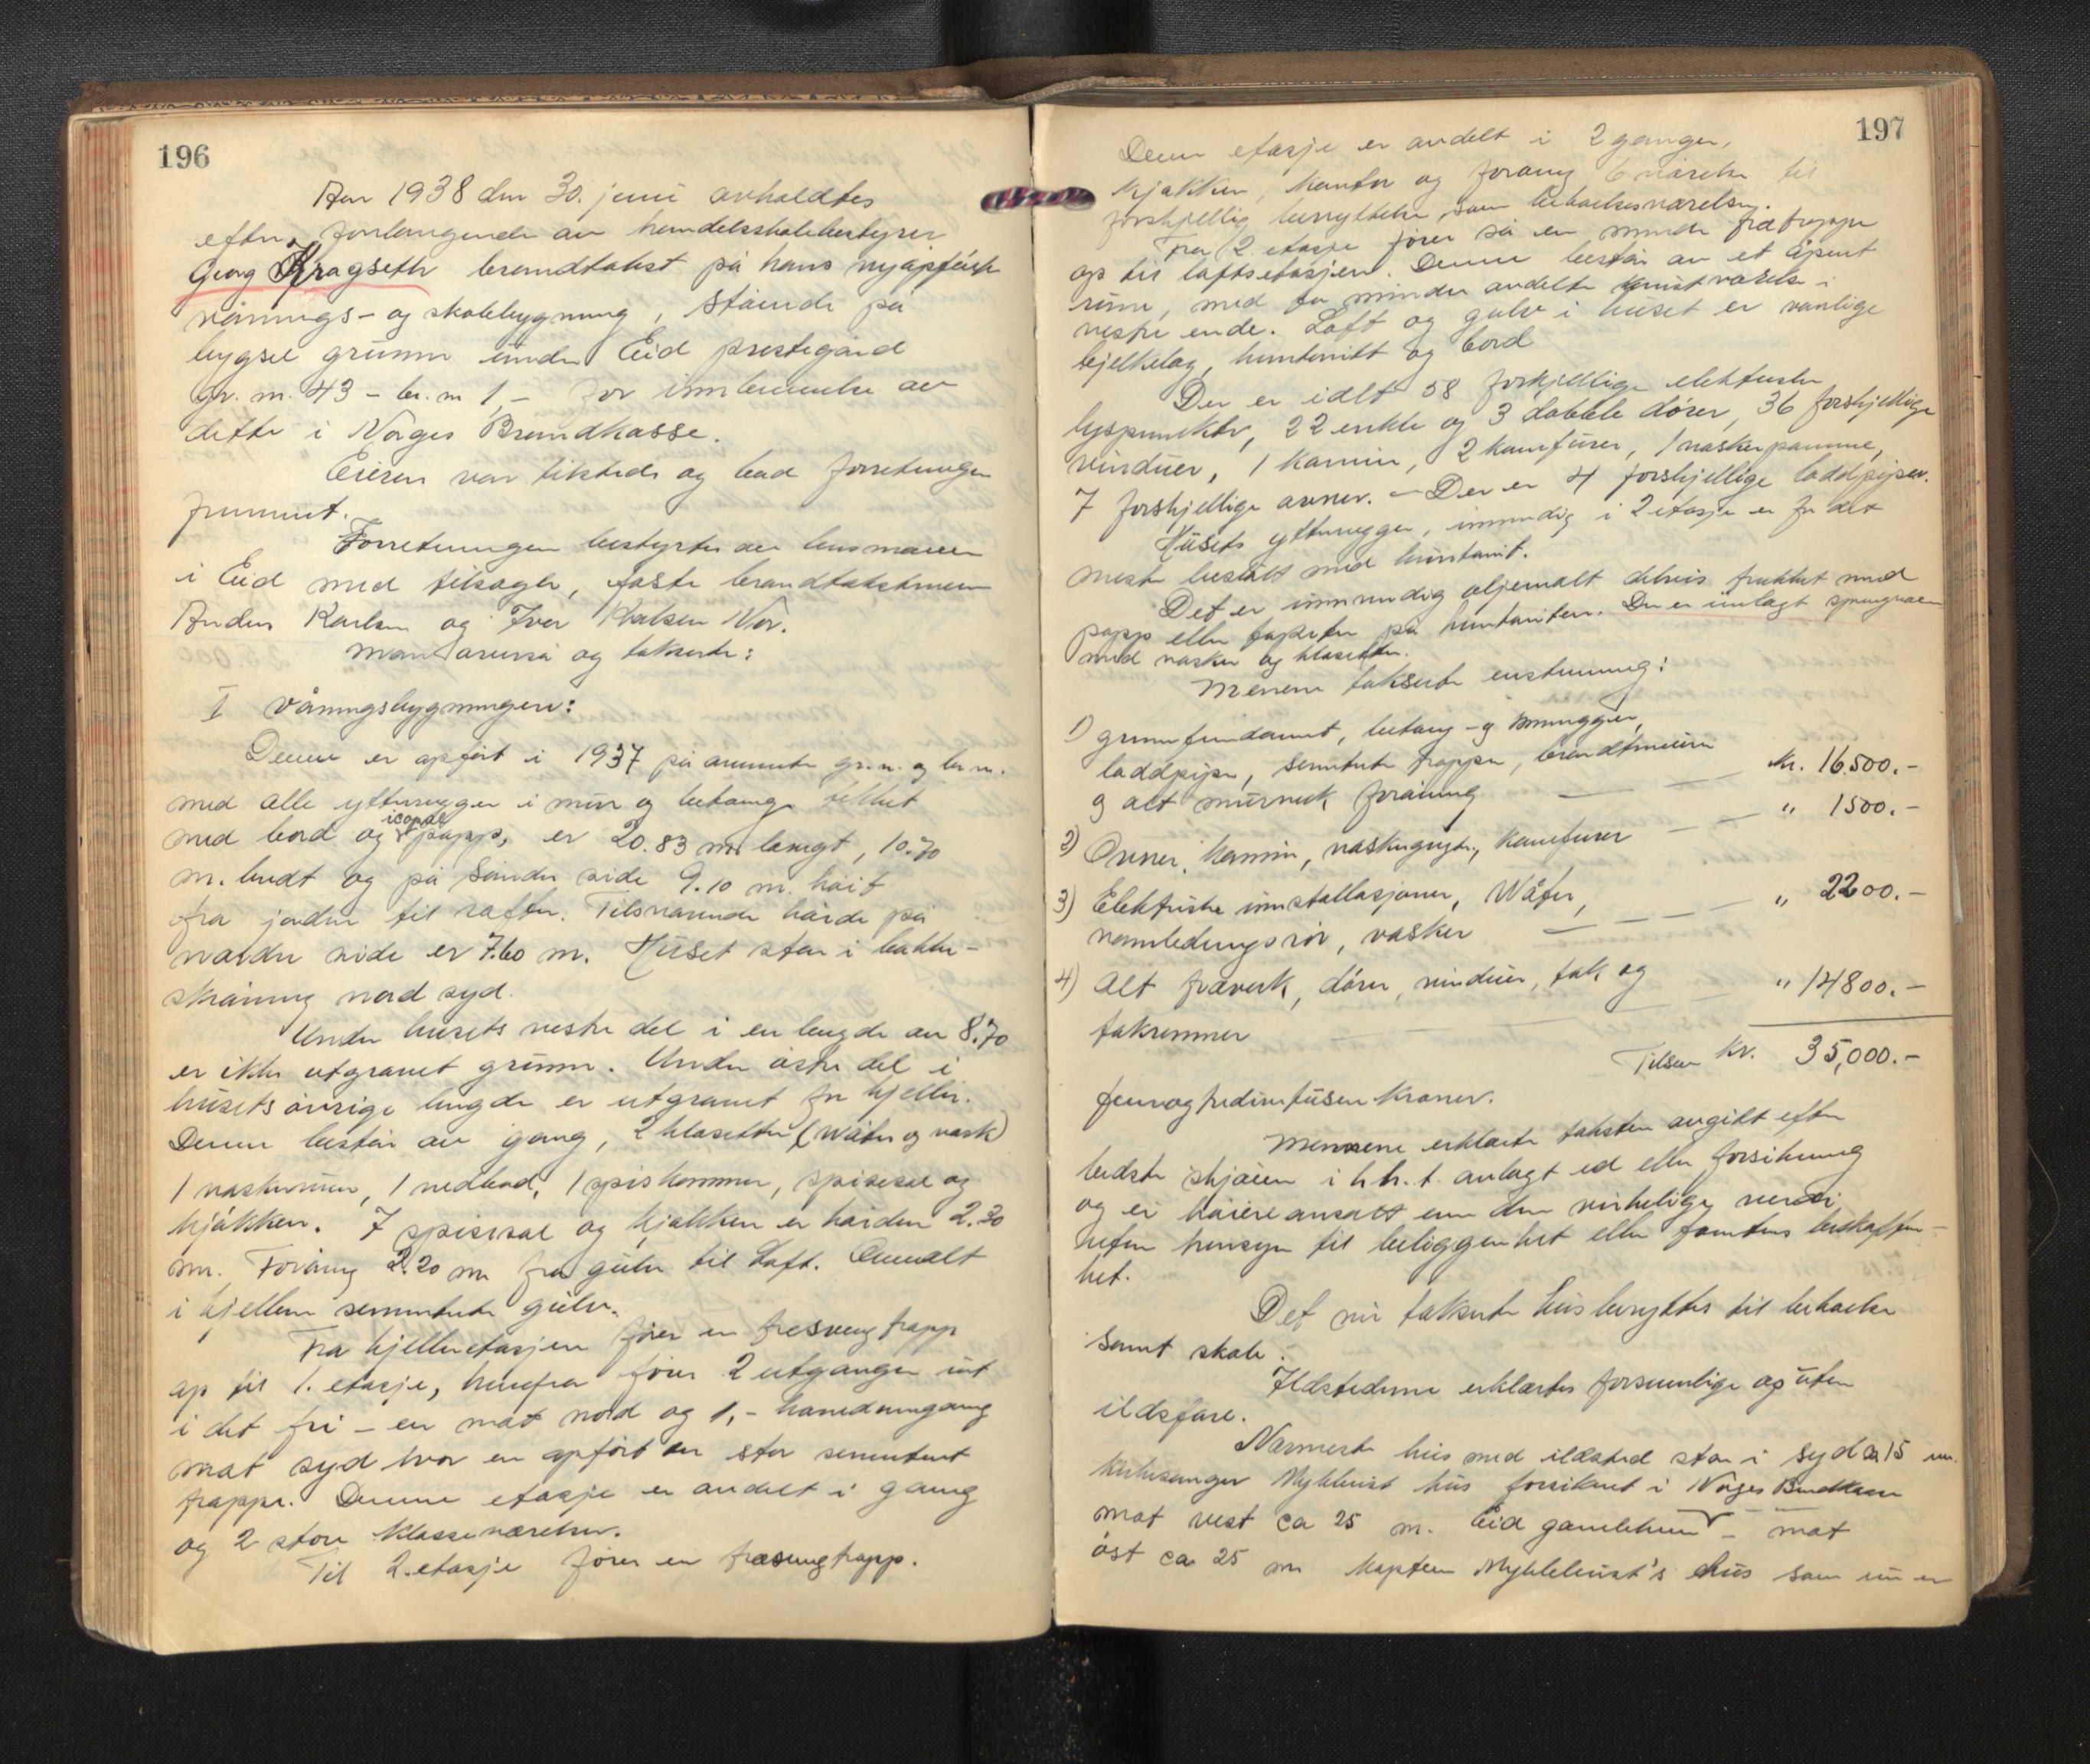 196
Aar 1938 den 30. juni avholdtes
efter forlangende av handelsskolebestyrer
Georg Kragseth brandtakst på hans nyopførte
vånings- og skolebygning, stående på
bygsel grunn under Eid prestegård
gr. nr. 43 - br. nr 1, - for innbemelse av
dette i Norges Brandkasse.
Eieren var tilstede og bad forretningen
fremmet.
Forretningen bestyrtes av lensmannen
i Eid med tilsagte, faste brandtakstmenn
Anders Karlsen og Iver Karlsen Nor.
Man avenså og takserte:
I Våningsbygningen:
Denne er opført i 1937 på ovennevnte gr.nr. og br.nr.
med alle yttervegger i mur og betong tekket
med bord og icopal papp, er 20.83 m langt, 10.70
m. bredt og på søndre side 9.10 m. høit
fra jorden til raften. Tilsvarende høide på
nordre side er 7.60 m. Huset står i bakke-
skråning nord syd.
Under husets vestre del i en lengde av 8.70
er ikke utgravet grunn. Under østre del i
husets øvrige lengde er utgravet for kjeller.
Denne består av gang, 2 klosetter (Wåter og vask)
1 vaskerum, 1 vedbod, 1 spiskammer, spisesal og
kjøkken. I spisesal og kjøkken er høiden 2.30
m. Forøvrig 2.20 m fra gulv til Loft. Overalt
i kjelleren sementerte gulv.
Fra kjelleretasjen fører en tresving trapp
op til 1. etasje, herfra fører 2 utganger ut
i det fri - en mot nord og 1, - hovedinngang
mot syd hvor er opført en stor sementert
trappe. Denne etasje er avdelt i gang
og 2 store klasseværelser.
Til 2. etasje fører en træsving trapp.
197
Denne etasje er avdelt i 2 ganger,
kjøkken, kontor og forøvrig 6 værelser til
forskjellig benyttelse, som beboelsesværelser.
Fra 2 etasje fører så en mindre trætrappe
op til loftsetasjen. Denne består av et åpent
rum, med to mindre avdelte kvistværelse i
vestre ende. Loft og gulv i huset er vanlige
bjelkelag, huntonitt og bord
Der er ialt 58 forskjellige elektriske
lyspunkter, 22 enkle og 3 dobble dører, 36 forskjellige
vinduer, 1 kamin, 2 komfurer, 1 vaskepanne,
7 forskjellige ovner. - Der er 4 forskjellige loddpiper.
Husets yttervegger, innvendig i 2 etasje er for det
meste beslått med huntonit.
Det er innvendig oljemalt delvis trukket med
papp eller tapeter på huntoniten. Der er innlagt springvann
med vasker og klosetter.
Mennene takserte enstemmig:
1) Grunnfundament, betong- og murvegger,
loddpiper, sementerte trapper, brandtmurer
og alt murverk forøvrig — — Kr. 16.500.-
2) Ovner, kamin, vaskegryte, komfurer — — " 1500.-
3) Elektriske innstallasjoner, Wåter,
vannledningsrør, vasker — — — " 2200.-
4) Alt treverk, dører, vinduer, tak og
takrenner — — " 14800.-
Tilsam Kr. 35,000.-
femogtredivetusen kroner.
Mennene erklærte taksten avgitt efter
bedste skjønn i h.h. t. avlagt ed eller forsikring
og er høiere ansatt enn den virkelige verdi
uten hensyn til beliggenhet eller tomtens beskaffen-
het.
Det nu takserte hus benyttes til beboelse
samt skole.
Ildstederne erklærtes forsvarlige og uten
ildsfare.
Nærmeste hus med ildsted står i syd ca 15 m.
kirkesanger Myklebust hus forsikret i Norges Brandkasse
mot vest ca 25 m. Eid gamlehjem - mot
øst ca 25 m kaptein Myklebust's hus som nu er